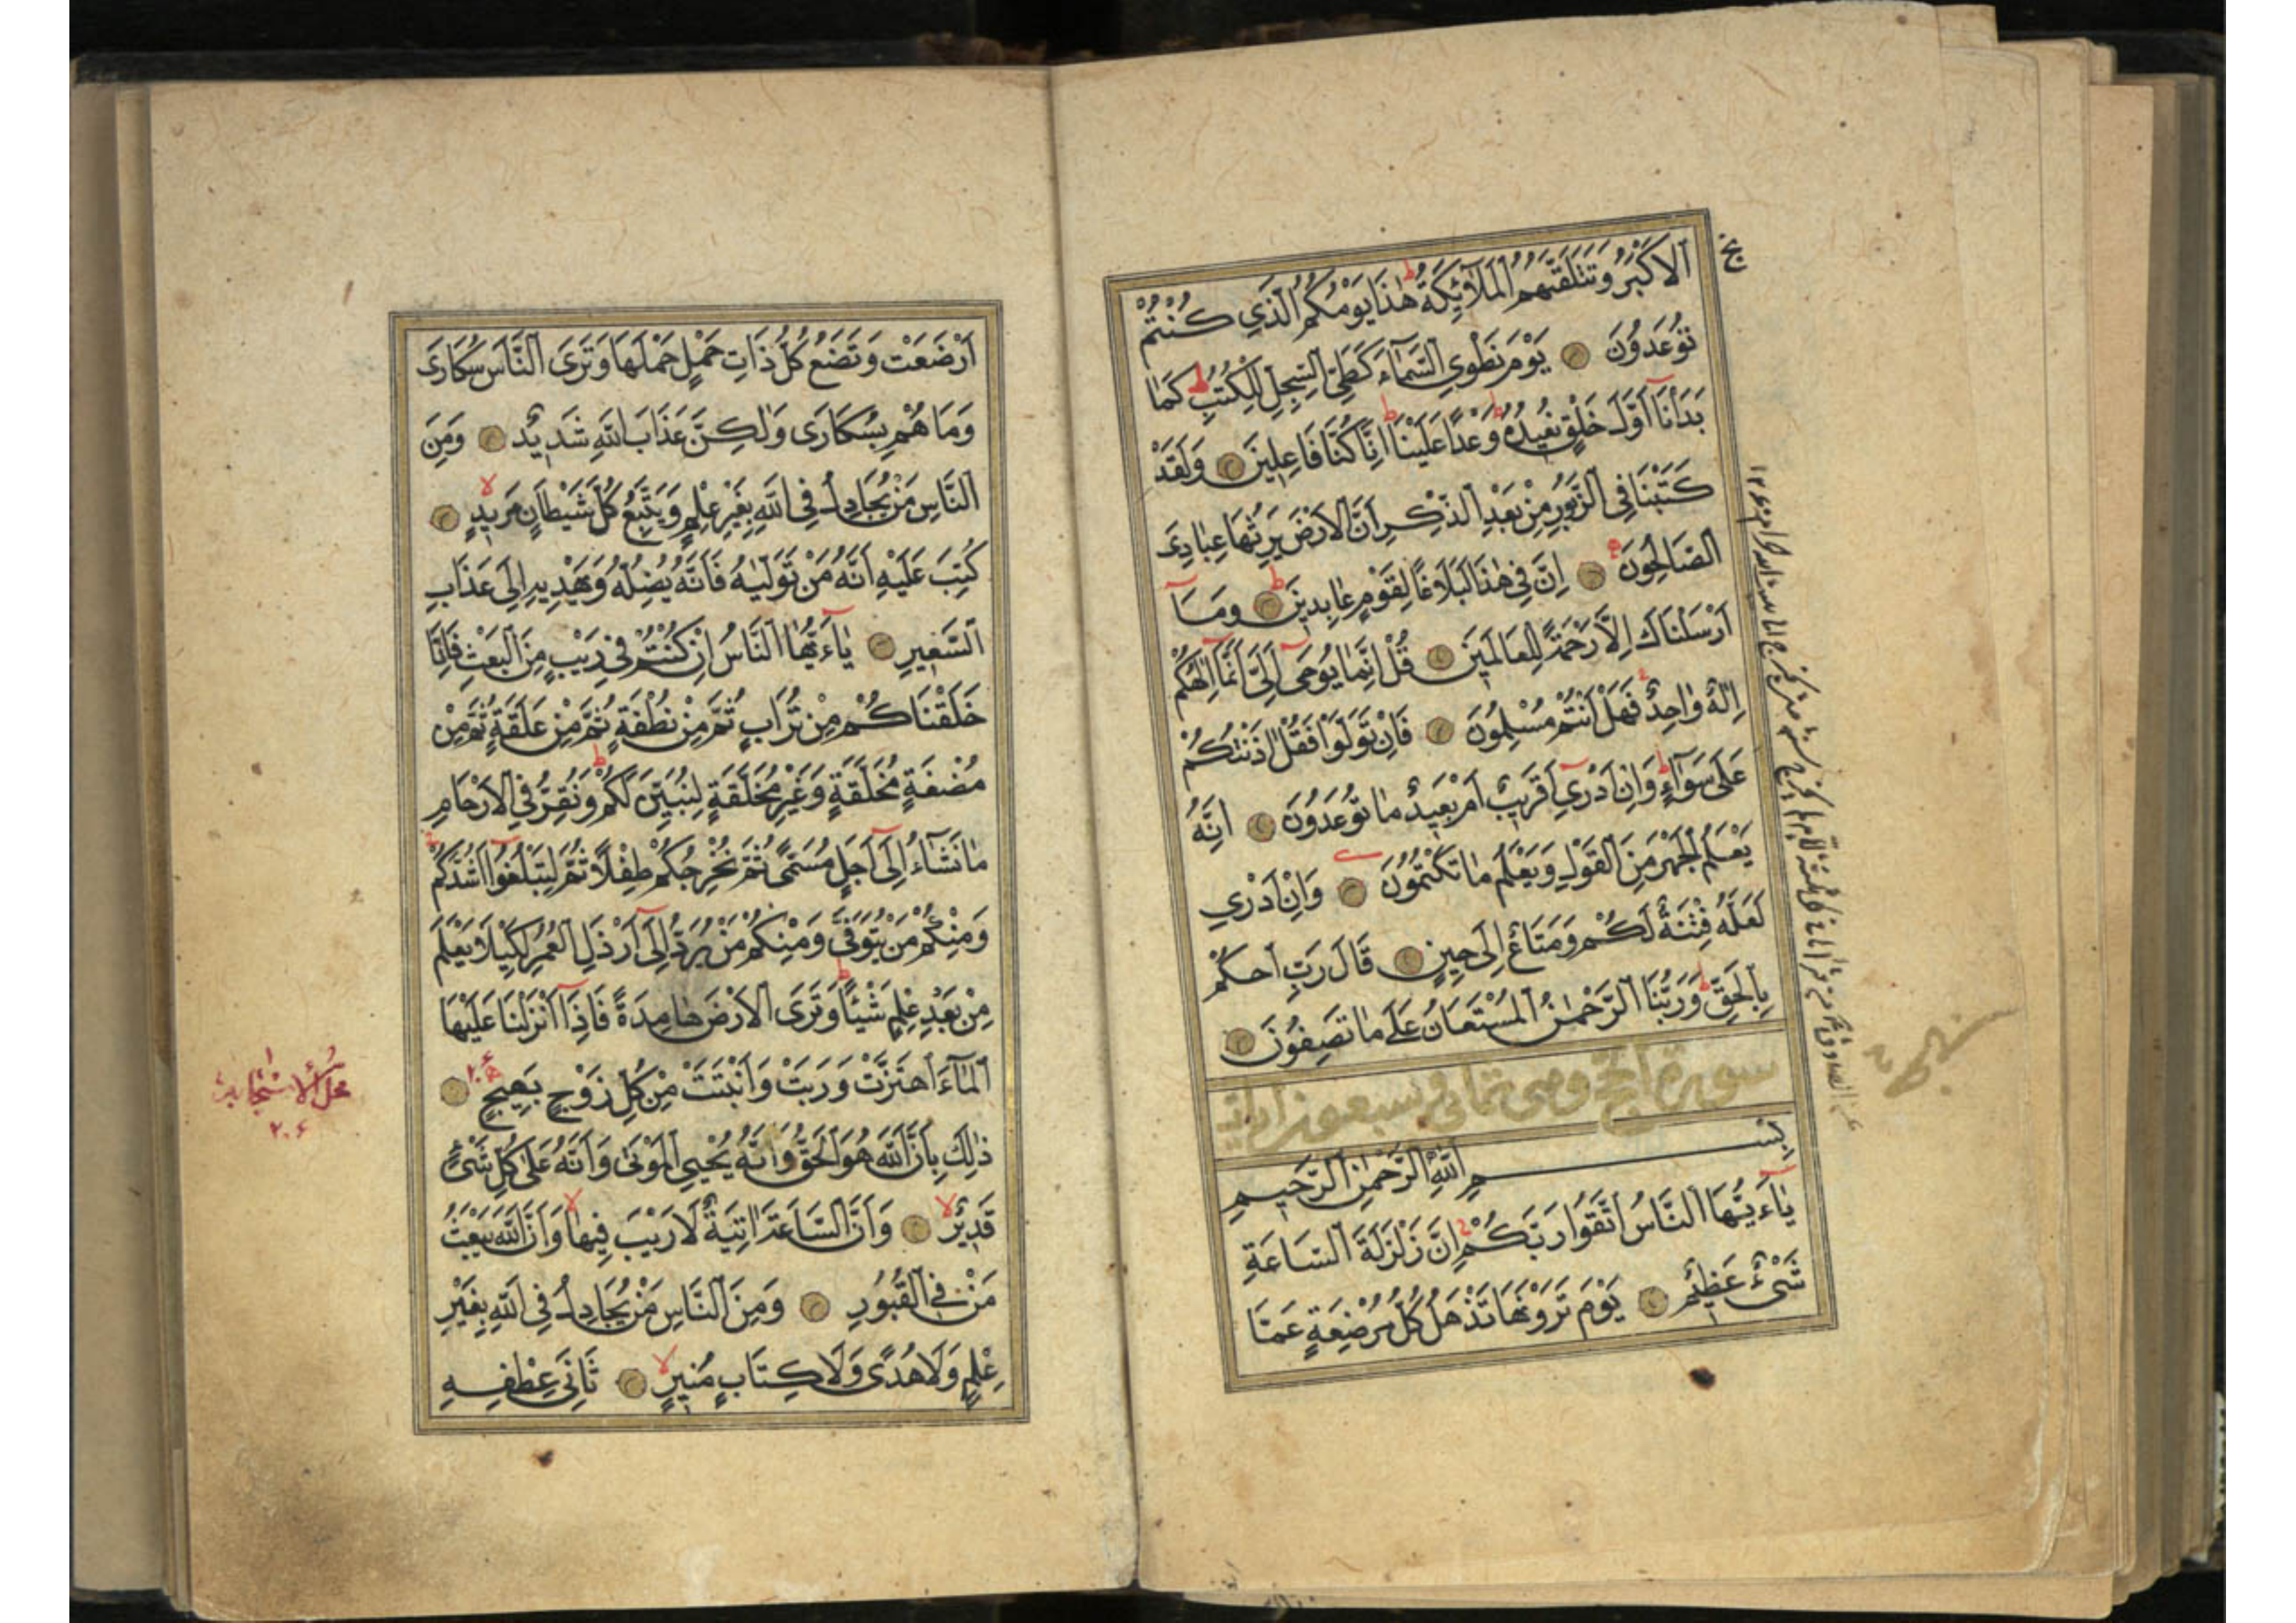 الاَكْبَرُ وَتَتَلَقّٰيهُمُ الْمَلٰٓائِكَةُ هٰذَا يَوْمُكُمُ الَّذِي كُنْتُمْ
تُوعَدُونَ يَوْمَ نَطْوِي السَّمَآءَ كَطَيِّ السِّجِلِّ لِلْكُتُبِ كَمَا
بَدَأْنَا اَوَّلَ خَلْقٍ نُعِيدُهُ وَعْدًا عَلَيْنَا اِنَّا كُنَّا فَاعِلِينَ وَلَقَدْ
كَتَبْنَا فِي الزَّبُورِ مِنْ بَعْدِ الذِّكْرِ اَنَّ الاَرْضَ يَرِثُهَا عِبَادِيَ
الصَّالِحُونَ اِنَّ فِي هٰذَا لَبَلَاغًا لِقَوْمٍ عَابِدِينَ وَمَآ
اَرْسَلْنَاكَ اِلاَّ رَحْمَةً لِلْعَالَمِينَ قُلْ اِنَّمَا يُوحَى اِلَيَّ اَنَّمَا اِلٰهُكُمْ
اِلٰهٌ وَاحِدٌ فَهَلْ اَنْتُمْ مُسْلِمُونَ فَاِنْ تَوَلَّوْا فَقُلْ اٰذَنْتُكُمْ
عَلَى سَوَآءٍ وَاِنْ اَدْرِي اَقَرِيبٌ اَمْ بَعِيدٌ مَا تُوعَدُونَ اِنَّهُ
يَعْلَمُ الْجَهْرَ مِنَ الْقَوْلِ وَيَعْلَمُ مَا تَكْتُمُونَ وَاِنْ اَدْرِي
لَعَلَّهُ فِتْنَةٌ لَكُمْ وَمَتَاعٌ اِلَى حِينٍ قَالَ رَبِّ احْكُمْ
بِالْحَقِّ وَرَبُّنَا الرَّحْمٰنُ الْمُسْتَعَانُ عَلَى مَا تَصِفُونَ
سورة الحج وهي ثماني وسبعون اية
بِسْمِ اللّٰهِ الرَّحْمٰنِ الرَّحِيمِ
يٰآءَيُّهَا النَّاسُ اتَّقُوا رَبَّكُمْ اِنَّ زَلْزَلَةَ السَّاعَةِ
شَيْءٌ عَظِيمٌ يَوْمَ تَرَوْنَهَا تَذْهَلُ كُلُّ مُرْضِعَةٍ عَمَّا
اَرْضَعَتْ وَتَضَعُ كُلُّ ذَاتِ حَمْلٍ حَمْلَهَا وَتَرَى النَّاسَ سُكَارَى
وَمَا هُمْ بِسُكَارَى وَلٰكِنَّ عَذَابَ اللّٰهِ شَدِيدٌ وَمِنَ
النَّاسِ مَنْ يُجَادِلُ فِي اللّٰهِ بِغَيْرِ عِلْمٍ وَيَتَّبِعُ كُلَّ شَيْطَانٍ مَرِيدٍ
كُتِبَ عَلَيْهِ اَنَّهُ مَنْ تَوَلَّاهُ فَاَنَّهُ يُضِلُّهُ وَيَهْدِيهِ اِلَى عَذَابِ
السَّعِيرِ يٰآءَيُّهَا النَّاسُ اِنْ كُنْتُمْ فِي رَيْبٍ مِنَ الْبَعْثِ فَاِنَّا
خَلَقْنَاكُمْ مِنْ تُرَابٍ ثُمَّ مِنْ نُطْفَةٍ ثُمَّ مِنْ عَلَقَةٍ ثُمَّ مِنْ
مُضْغَةٍ مُخَلَّقَةٍ وَغَيْرِ مُخَلَّقَةٍ لِنُبَيِّنَ لَكُمْ وَنُقِرُّ فِي الاَرْحَامِ
مَا نَشَآءُ اِلَى اَجَلٍ مُسَمًّى ثُمَّ نُخْرِجُكُمْ طِفْلًا ثُمَّ لِتَبْلُغُوا اَشُدَّكُمْ
وَمِنْكُمْ مَنْ يُتَوَفَّى وَمِنْكُمْ مَنْ يُرَدُّ اِلَى اَرْذَلِ الْعُمُرِ لِكَيْلَا يَعْلَمَ
مِنْ بَعْدِ عِلْمٍ شَيْئًا وَتَرَى الاَرْضَ هَامِدَةً فَاِذَا اَنْزَلْنَا عَلَيْهَا
الْمَآءَ اهْتَزَّتْ وَرَبَتْ وَاَنْبَتَتْ مِنْ كُلِّ زَوْجٍ بَهِيجٍ
ذٰلِكَ بِاَنَّ اللّٰهَ هُوَ الْحَقُّ وَاَنَّهُ يُحْيِي الْمَوْتَى وَاَنَّهُ عَلَى كُلِّ شَيْءٍ
قَدِيرٌ وَاَنَّ السَّاعَةَ اٰتِيَةٌ لَا رَيْبَ فِيهَا وَاَنَّ اللّٰهَ يَبْعَثُ
مَنْ فِي الْقُبُورِ وَمِنَ النَّاسِ مَنْ يُجَادِلُ فِي اللّٰهِ بِغَيْرِ
عِلْمٍ وَلَا هُدًى وَلَا كِتَابٍ مُنِيرٍ ثَانِيَ عِطْفِهِ
٢٠٦